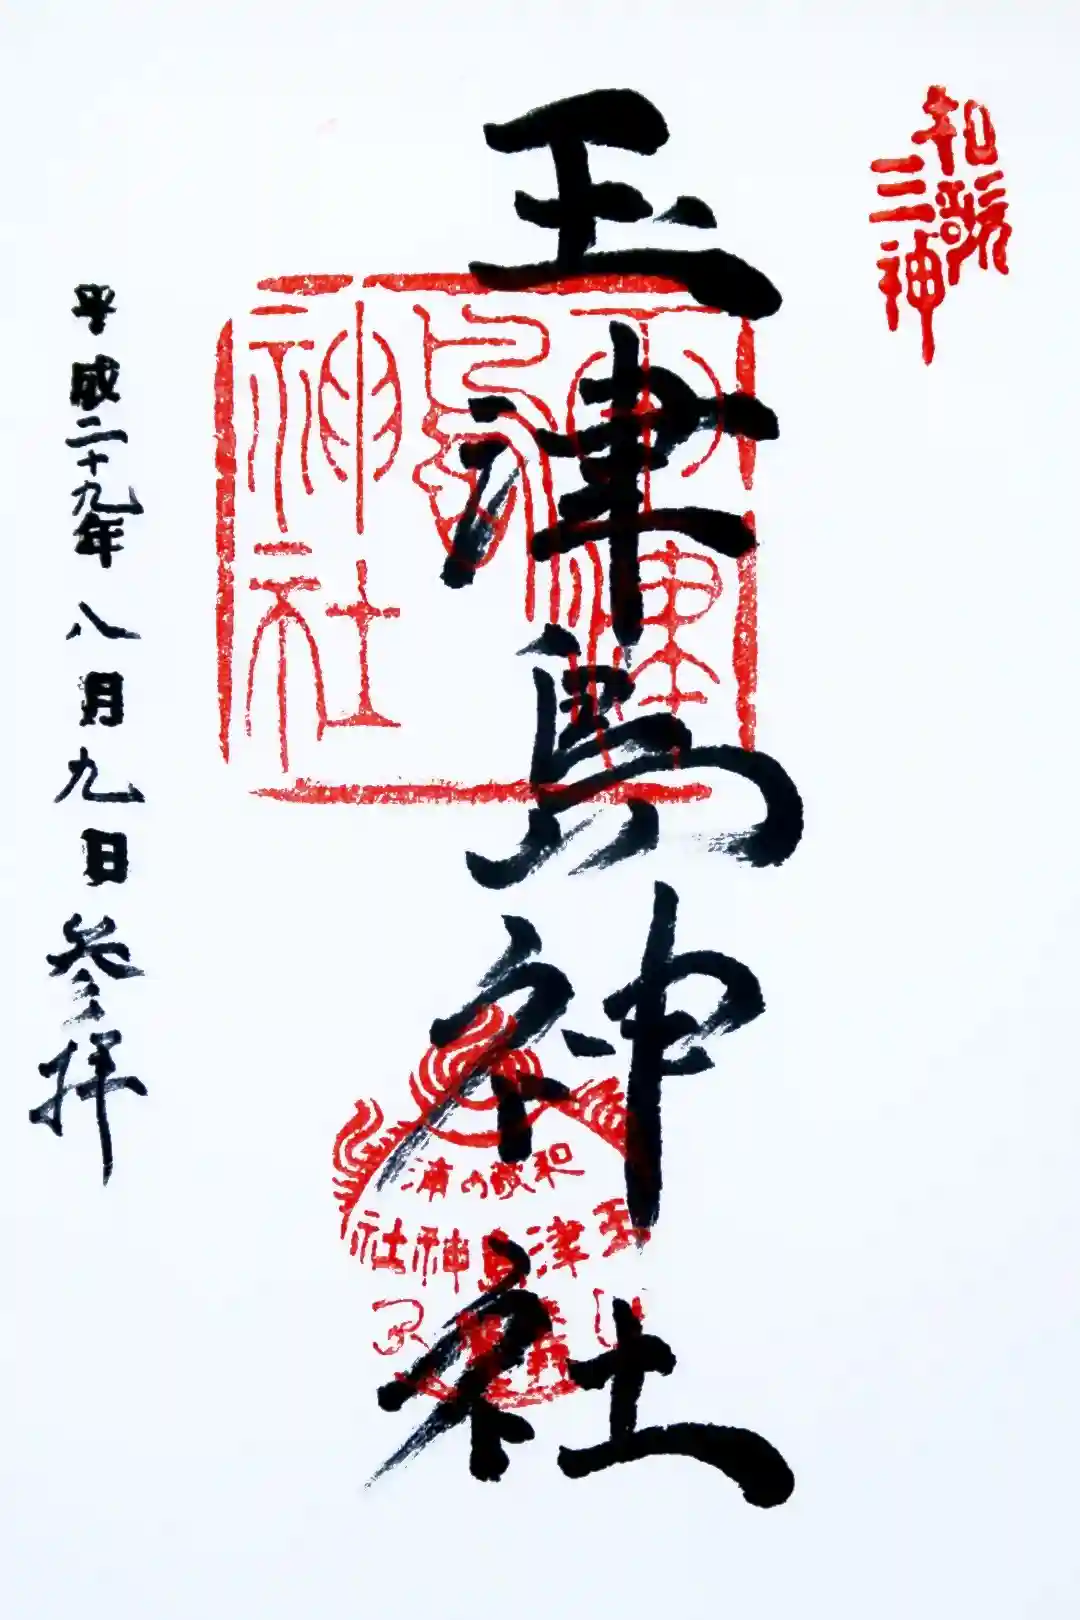 和歌
三神
玉津島神社
玉津
島
神社
和歌の浦
玉津島神社
平成二十九年八月九日参拝